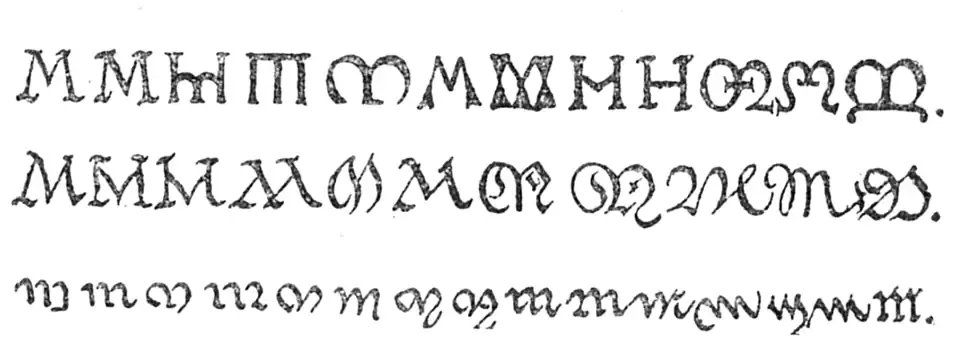 M M M M M M M M M M M M.
M M M M M M M M M M M.
m m m m m m m m m m m m m m m.